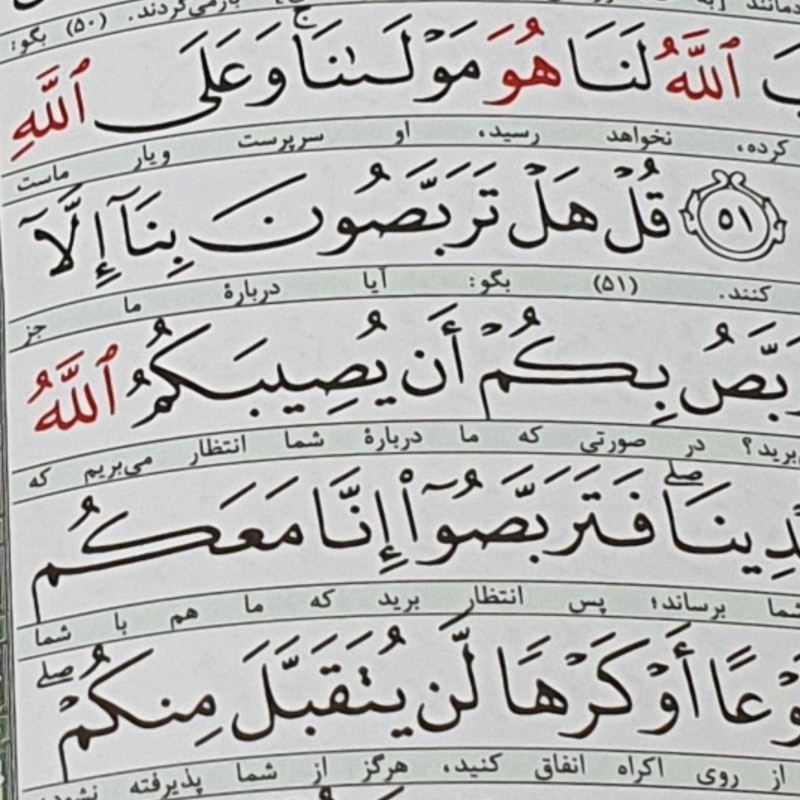 بازمی‌گردند. (۵۰) بگو:
ٱللَّهُ لَنَا هُوَ مَوْلَىٰنَا ۚ وَعَلَى ٱللَّهِ
کرده، نخواهد رسید، او سرپرست و یار ماست
۵۱ قُلْ هَلْ تَرَبَّصُونَ بِنَآ إِلَّآ
کنند. (۵۱) بگو: آیا دربارهٔ ما جز
بِكُمْ أَن يُصِيبَكُمُ ٱللَّهُ
در صورتی که ما دربارهٔ شما انتظار می‌بریم که
فَتَرَبَّصُوٓا۟ إِنَّا مَعَكُم
شما برساند؛ پس انتظار برید که ما هم با شما
أَوْ كَرْهًا لَّن يُتَقَبَّلَ مِنكُمْ ۖ
از روی اکراه انفاق کنید، هرگز از شما پذیرفته